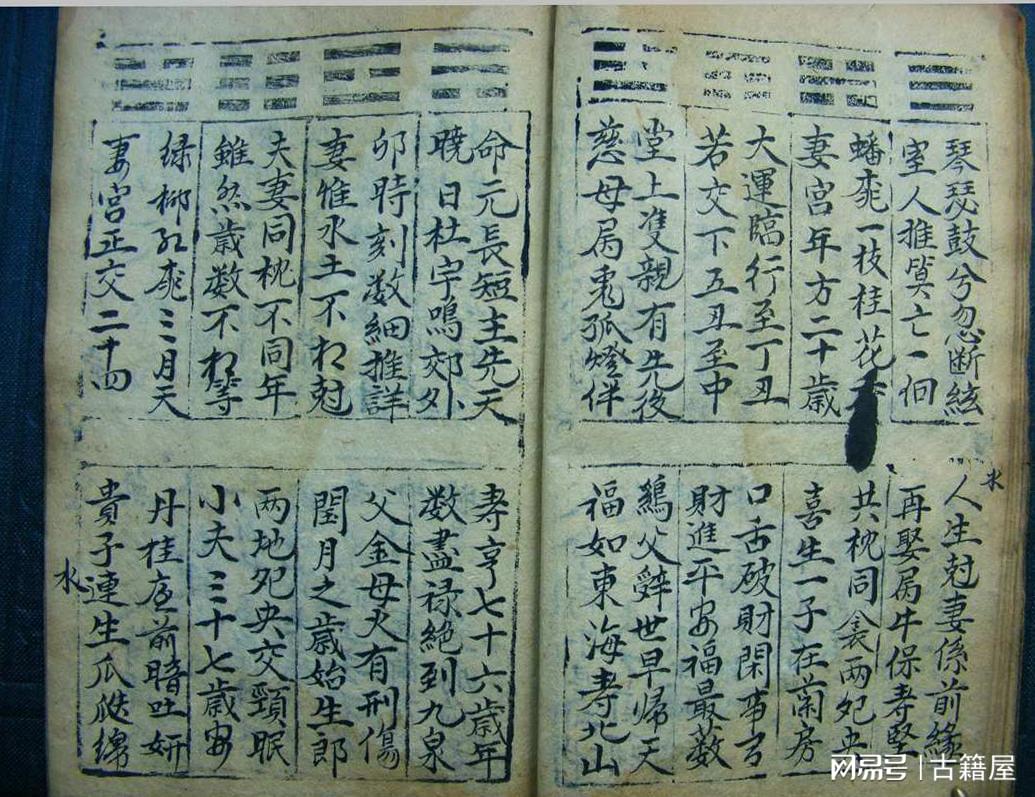 琴瑟鼓兮忽断絃
室人推算亡一個
蟠桃一枝桂花
妻宮年方二十歲
大運臨行至丁丑
若交下五丑至中
堂上雙親有先後
慈母属兎孤燈伴
人生尅妻係前緣
再娶属牛保寿堅
共枕同衾两鸳央
喜生一子在蘭房
口舌破財閑事有
財進平安福最薮
鷄父辭世早帰天
福如東海寿北山
水
命元長短主先天
曉日杜宇鳴郊外
卯時刻数細推詳
妻惟水土不相尅
夫妻同枕不同年
雖然歲数不相等
绿柳红桃三月天
妻宫正交二十四
寿亨七十六歲年
数盡禄絕到九泉
父金母火有刑傷
閏月之歲始生郎
两地鸳央交頸眠
小夫三十七歲安
丹桂庭前暗吐妍
貴子連生瓜瓞綿
水
网易号 | 古籍屋